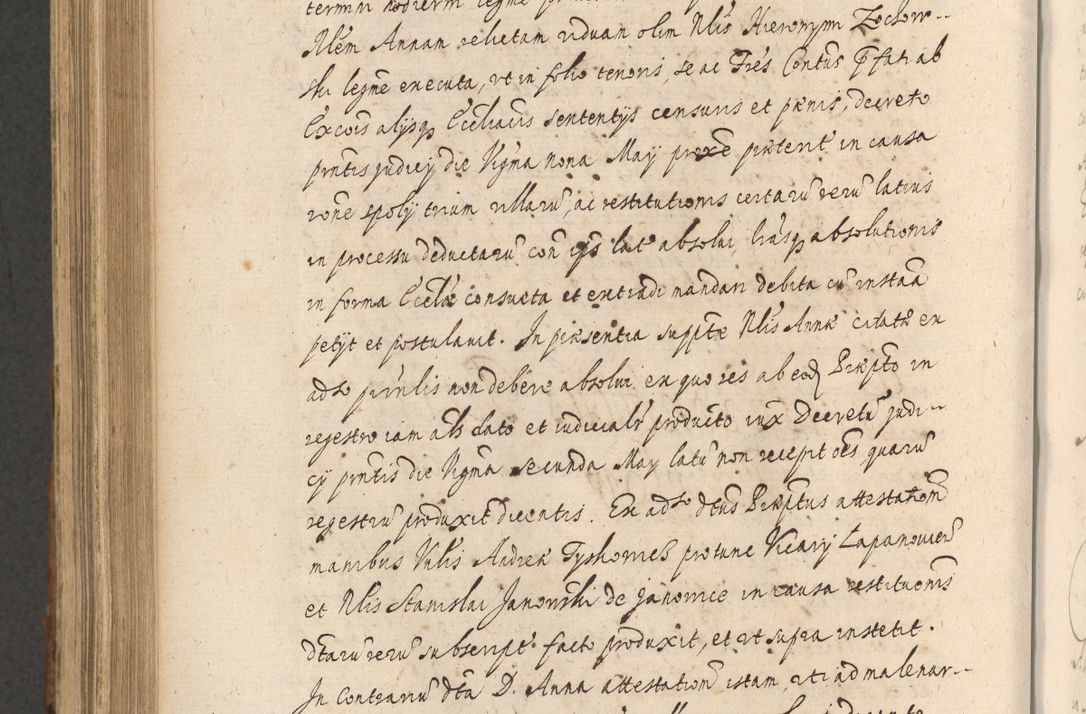 termin hodierni legme
Nlem Annam relictam viduam olim Nlis Hieronymi Zochow--
ski legme executa, vt in folio tenoris, se ac Fres Contus pfati ab
Excois alysq Eccliacis sententys censuris et pænis, decreto
pntis judicy die Vigma nona May proxe præterit in causa
rone spoly trium villaru, ac restitutionis certaru reru latius
in processu deductaru con ips lat absolui, lrasq absolutionis
in forma Eccliæ consueta et extradi mandari debita cu instaa
petyt et postulauit. In præsentia supptæ Nlis Annæ citatæ ex
adso pirnlis non debere absolui ex quo res ab eod Præpto in
regestro iam als dato et iudicialr producto iux Decretu judi--
cy pntis die Vigma secunda May latu non recepit oes quaru
regestru produxit dicentis. Ex adso dtus Præptus attestatiom
manibus Vnlis Andreæ Tyskowic protunc Vicary Łapanouien
et Nlis Stanislai Janowski de Janowice in causa restitucionis
dtaru reru subscript facto produxit, et vt supra institit.
In Contrariu dta D. Anna attestationem istam, vti ad malenar--